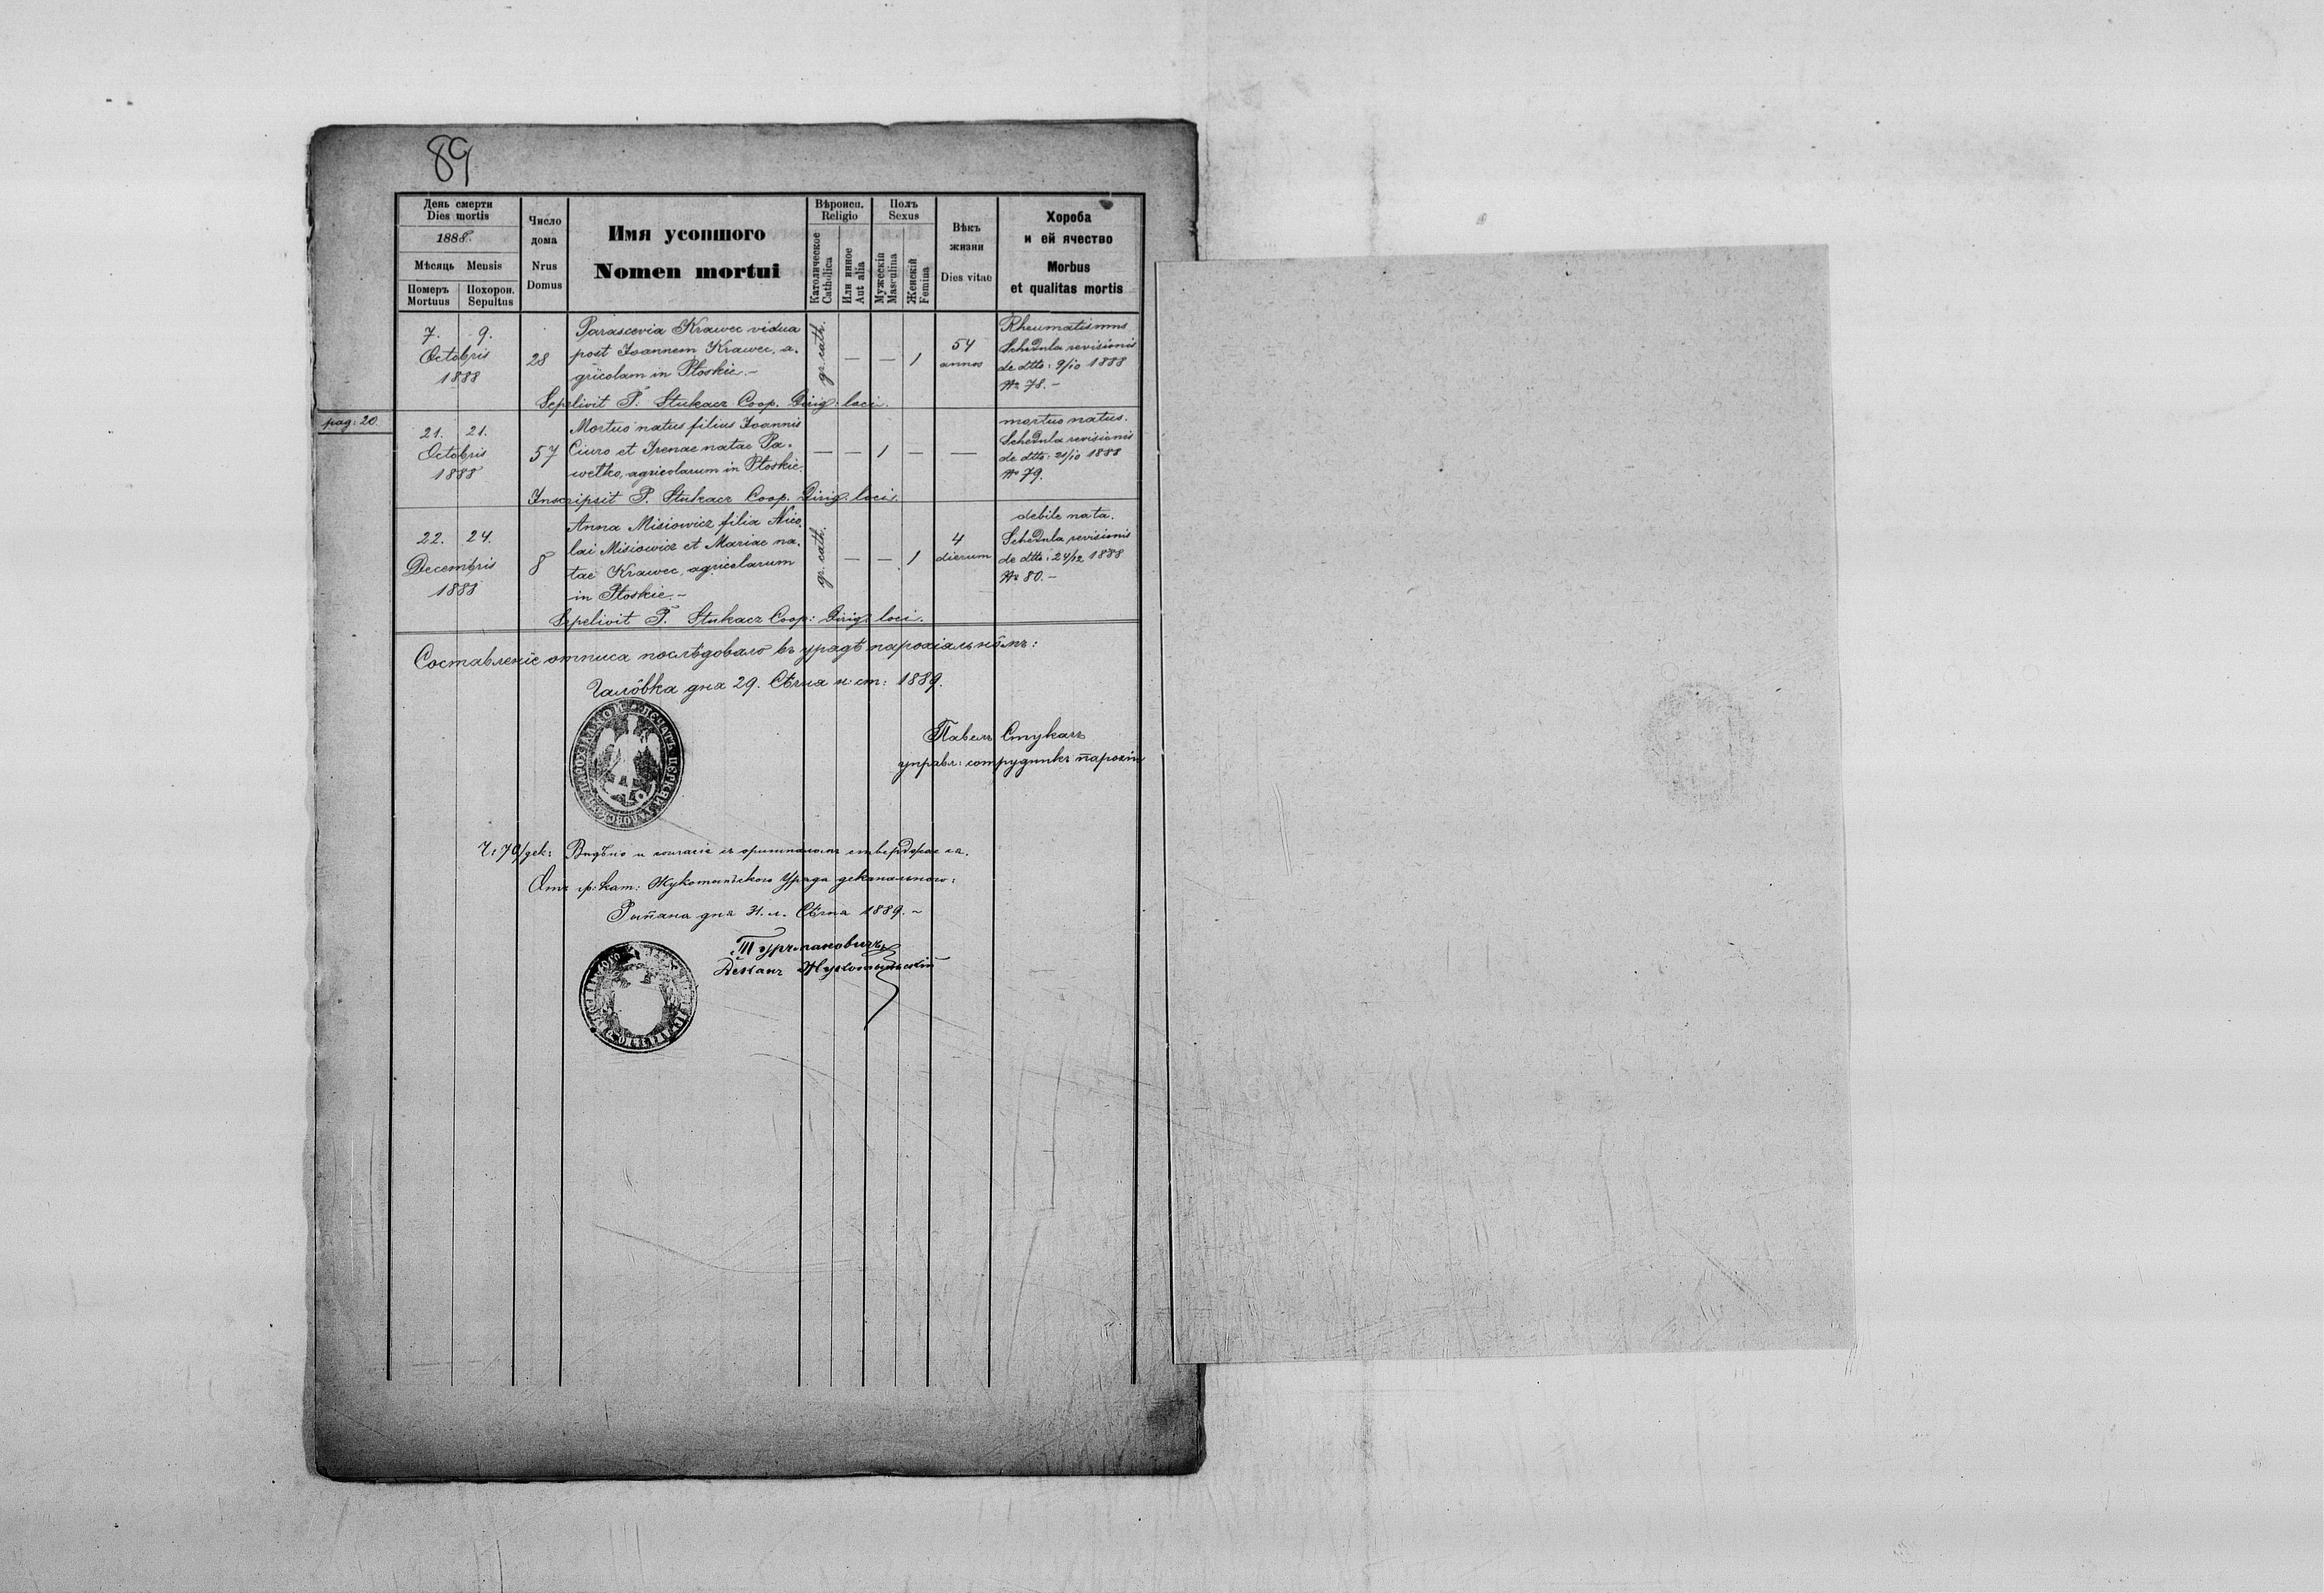 89
День смерти
Dies mortis
1888.
Мѣсяць Mensis
Померъ Похорон.
Mortuus Sepultus
Число
дома
Nrus
Domus
Имя усопшого
Nomen mortui
Вѣроисп.
Religio
Католическое
Catholica
Или инное
Aut alia
Полъ
Sexus
Мужескій
Masculina
Женскій
Femina
Вѣкъ
жизни
Dies vitae
Хороба
и ей ячество
Morbus
et qualitas mortis
7. 9.
Octobris
1888
28
Parascevia Krawec vidua
post Joannem Krawec, a-
gricolam in Płoskie.-
gr. cath.
— — 1
54
annos
Rheumatismus
Schedula revisionis
de dtto: 9/10 1888
No 78.-
Sepelivit P. Stukacz Coop. Dirig. loci.
pag: 20.
21. 21.
Octobris
1888
57
Mortuo natus filius Joannis
Ciuro et Irenae natae Pa-
wełko, agricolarum in Płoskie.
— — 1 — —
mortuo natus.
Schedula revisionis
de dtto: 21/10 1888
No 79.
Inscripsit P. Stukacz Coop. Dirig. loci.
22. 24.
Decembris
1888
8
Anna Misiowicz filia Nico-
lai Misiowicz et Mariae na-
tae Krawec, agricolarum
in Płoskie.-
gr. cath.
— — 1
4
dierum
debile nata.
Schedula revisionis
de dtto: 24/12 1888
No 80.-
Sepelivit P. Stukacz Coop: Dirig. loci.
Составленіе отписа послѣдовало въ урядѣ парохіальнôмъ:
Галôвка дня 29. Сѣчня н: ст: 1889.
Павелъ Стукачъ
управл: сотрудникъ парохіи
Ч: 70/дек:
Отъ гр: кат: Жукотинского Уряда деканального:
Рипяна дня 31. л. Сѣчня 1889.-
Турчмановичъ
Деканъ Жукотинскій